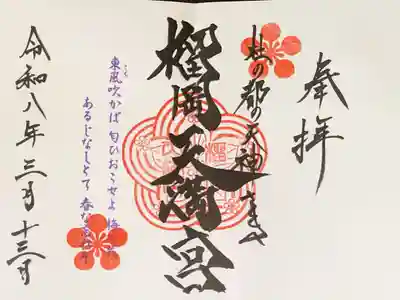 奉拝
杜の都の天神さま
榴岡天満宮
東風吹かば 匂ひおこせよ 梅の花
あるじなしとて 春な忘れそ
令和八年三月十三日